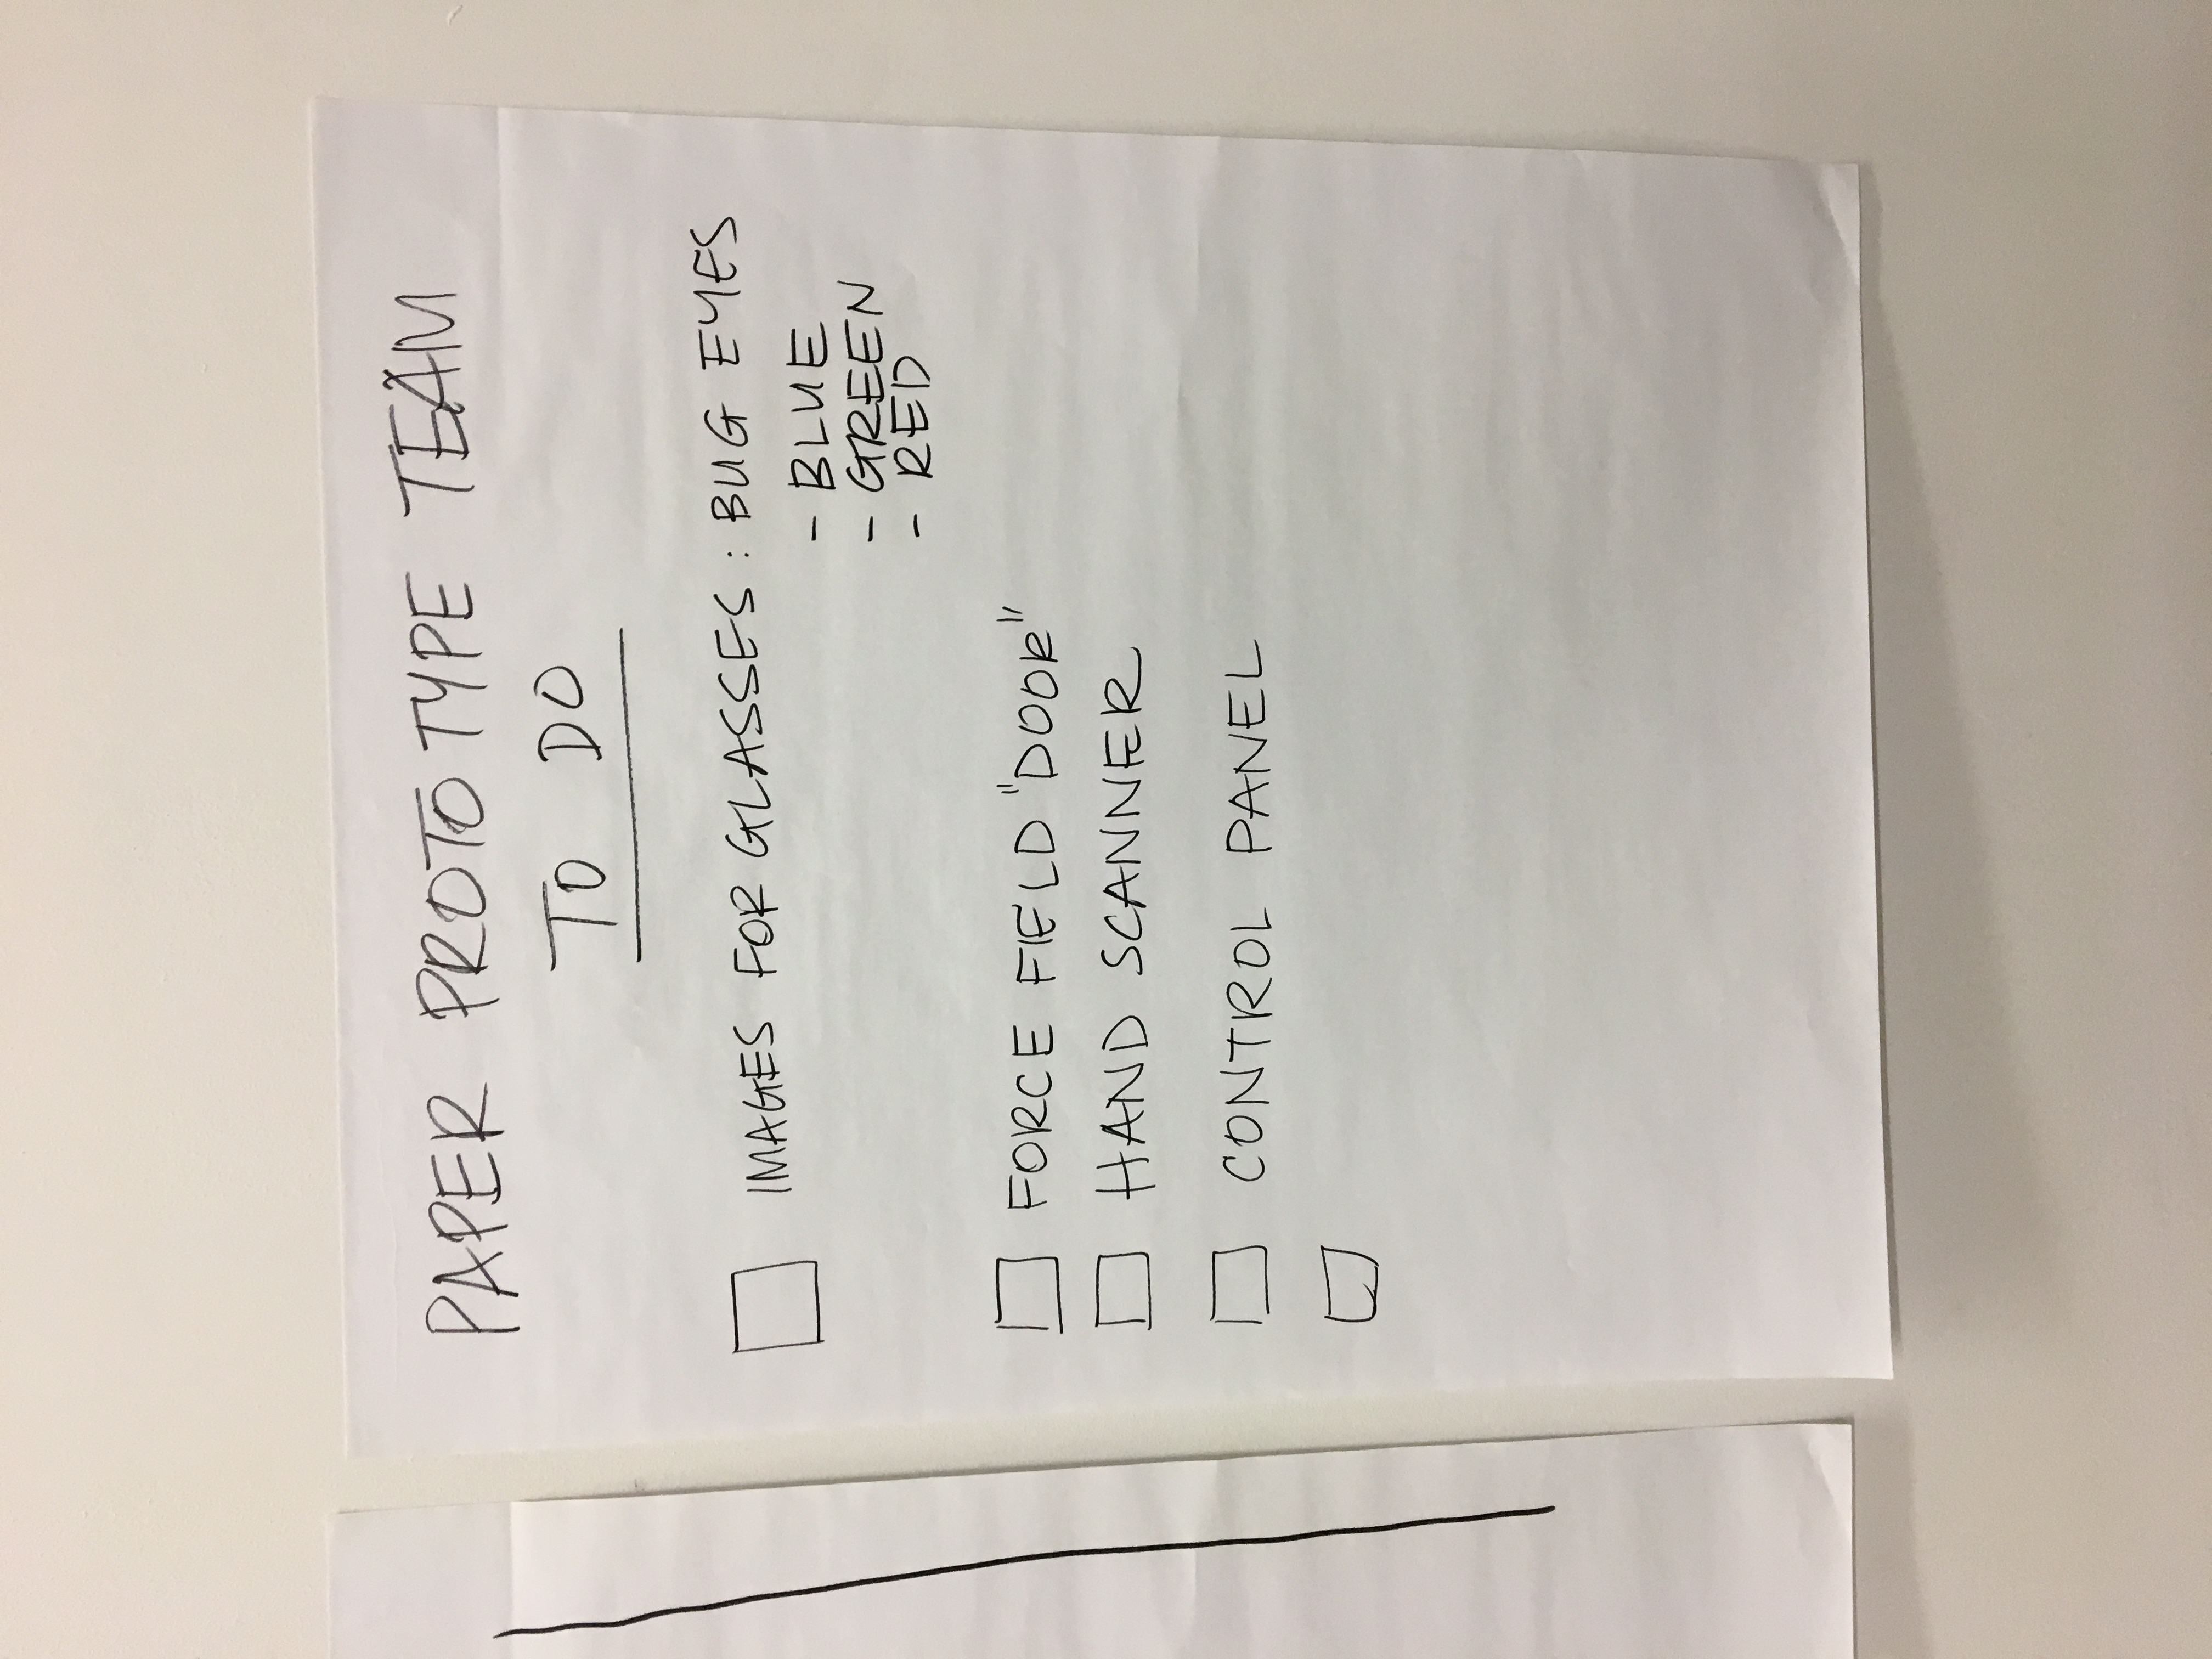 PAPER PROTOTYPE TEAM
TO DO
IMAGES FOR GLASSES : BUG EYES
- BLUE
- GREEN
- RED
FORCE FIELD "DOOR"
HAND SCANNER
CONTROL PANEL